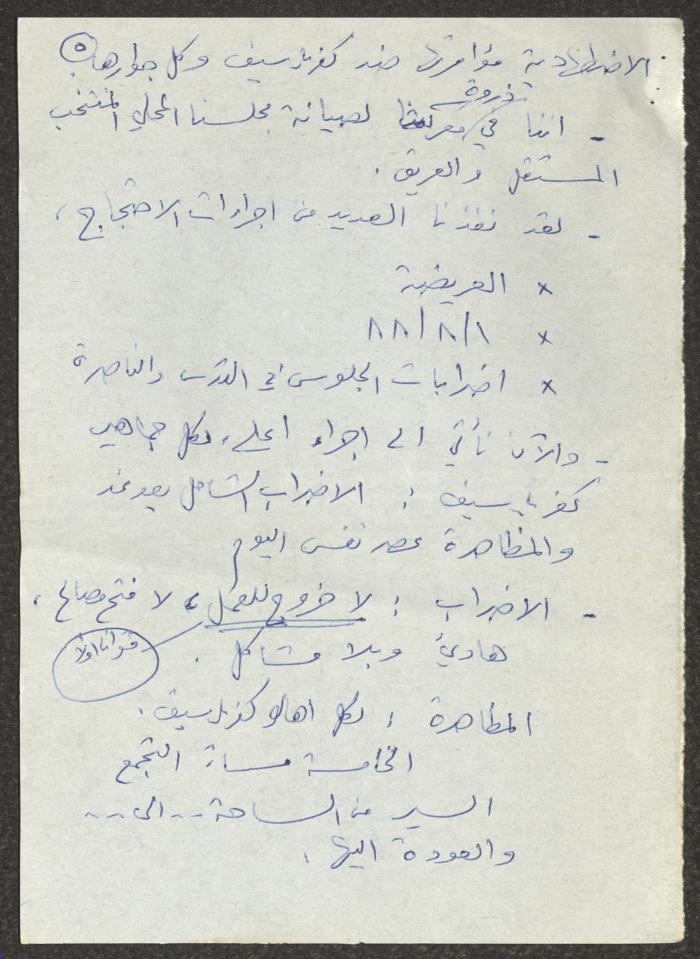 الاضطهادية مؤامرتها ضد كفرياسيف وكل جوارها. ٥
ذروة
- اننا في معركتنا لصيانة مجلسنا المحلي المنتخب
المستقل والعريق.
- لقد نفذنا العديد من اجراءات الاحتجاج،
x العريضة
x ٨٨/٨/١
x اضرابات الجلوس في القدس والناصرة
- والآن نأتي الى اجراء اعلى، لكل جماهير
كفرياسيف: الاضراب الشامل بعد غد
والمظاهرة عصر نفس اليوم
- الاضراب: لا خروج للعمل، لا فتح مصالح،
هادئ وبلا مشاكل.
المظاهرة: لكل اهالي كفرياسيف.
الخامسة مساءً التجمع
السير من الساحة... الى...
والعودة اليها.